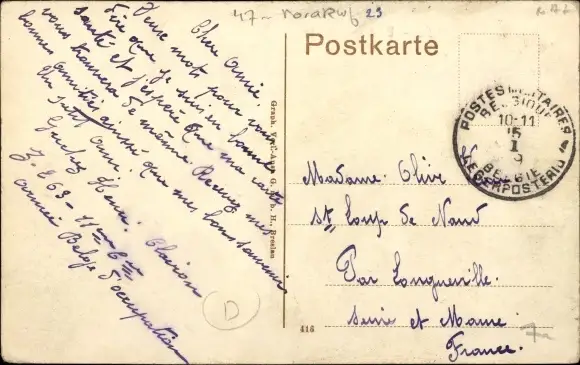 47 - Norakwf 23
Postkarte
Chère Amie.
Deux mots pour vous
dire que je suis en bonne
santé et j'espère que ma carte
vous trouvera de même. Recevez mes
bonnes amitiés ainsi que mes bons souvenirs
Un petit Ami.
Henri. Clairon
J. E 69 - 11eme Cie
armée Belge d'occupation
D
Graph. Verl.-Anst. G. m. b. H., Breslau
416
POSTES MILITAIRES
BELGIQUE
10-11
15
I
9
BELGIE
LEGERPOSTERIJ
Madame Olive
St Loup de Naud
Par Longueville.
Seine et Marne
France.